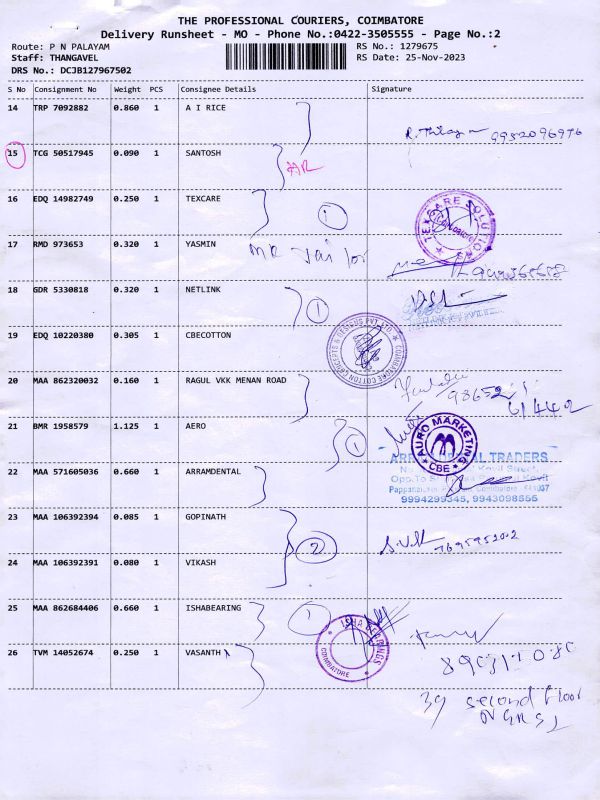 THE PROFESSIONAL COURIERS, COIMBATORE
Delivery Runsheet - MO - Phone No.:0422-3505555 - Page No.:2
Route: P N PALAYAM
Staff: THANGAVEL
DRS No.: DCJB127967502
RS No.: 1279675
RS Date: 25-Nov-2023
S No Consignment No Weight PCS Consignee Details Signature
14 TRP 7092882 0.860 1 A I RICE
9952096976
15 TCG 50517945 0.090 1 SANTOSH
16 EDQ 14982749 0.250 1 TEXCARE 1
TEXCARE SOLUTION
17 RMD 973653 0.320 1 YASMIN
18 GDR 5330818 0.320 1 NETLINK 1
19 EDQ 10220380 0.305 1 CBECOTTON
COIMBATORE COTTON CONCEPTS & DESIGNS PVT LTD
20 MAA 862320032 0.160 1 RAGUL VKK MENAN ROAD
98652
61442
21 BMR 1958579 1.125 1 AERO 1
AURO MARKETING
CBE
TRADERS
Kovil Street,
Opp.To
Coimbatore
9994299345, 9943098555
22 MAA 571605036 0.660 1 ARRAMDENTAL
23 MAA 106392394 0.085 1 GOPINATH 2
24 MAA 106392391 0.080 1 VIKASH
25 MAA 862684406 0.660 1 ISHABEARING 1
ISHA BEARINGS
COIMBATORE
26 TVM 14052674 0.250 1 VASANTH
39 second floor